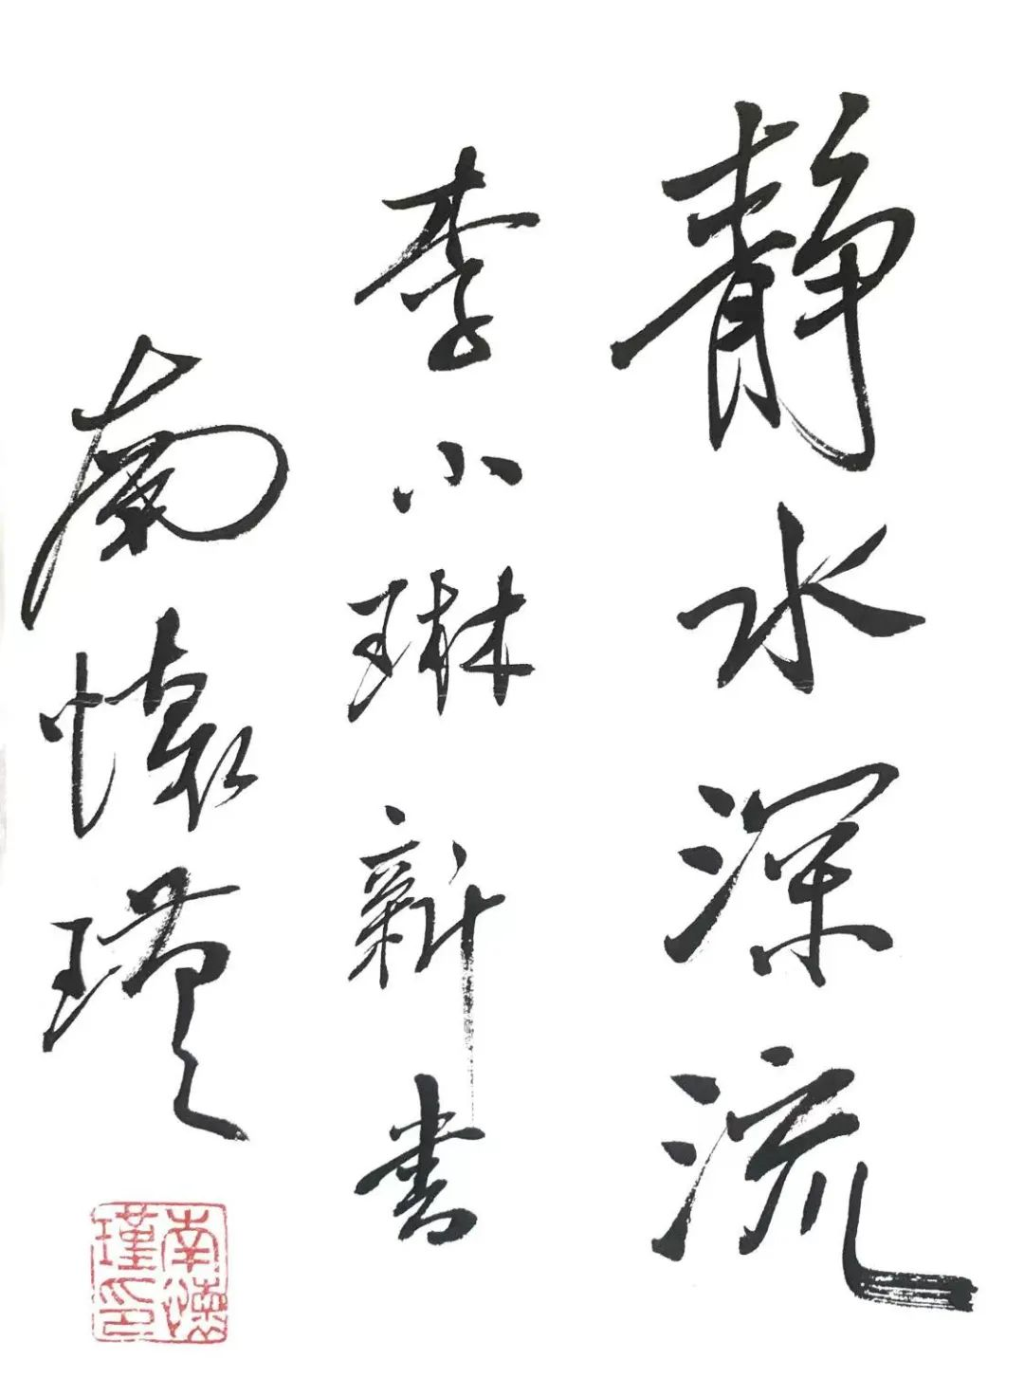 静水深流
李小琳新书
南怀瑾
南懷瑾印